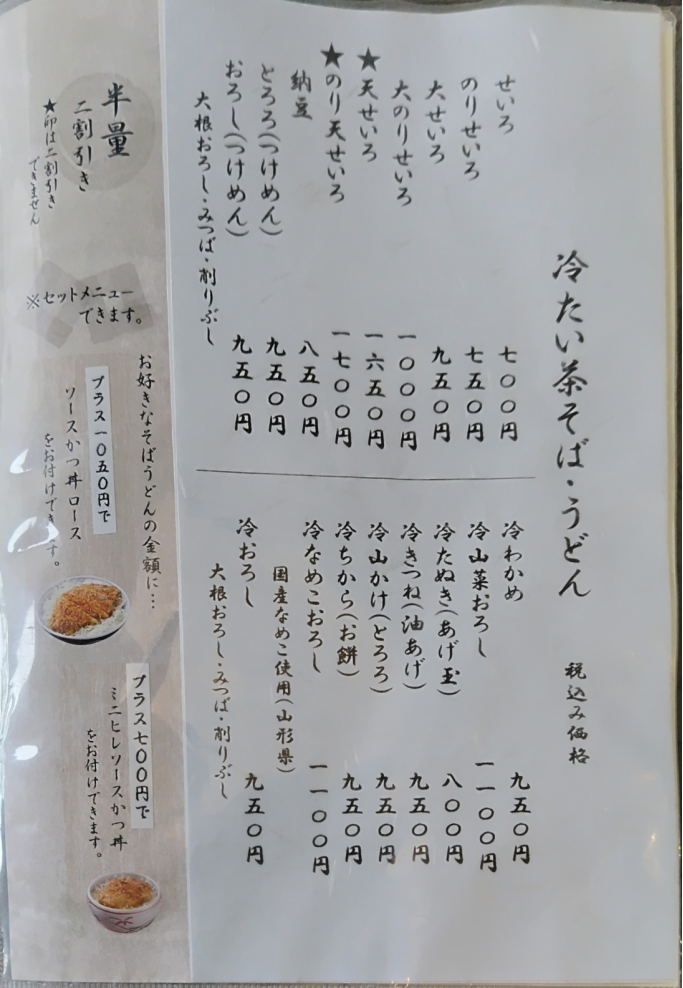 冷たい茶そば・うどん 税込み価格
せいろ 七〇〇円
のりせいろ 七五〇円
大せいろ 九五〇円
大のりせいろ 一〇〇〇円
★天せいろ 一六五〇円
★のり天せいろ 一七〇〇円
納豆 八五〇円
とろろ(つけめん) 九五〇円
おろし(つけめん) 九五〇円
大根おろし・みつば・削りぶし
冷わかめ 九五〇円
冷山菜おろし 一一〇〇円
冷たぬき(あげ玉) 八〇〇円
冷きつね(油あげ) 九五〇円
冷山かけ(とろろ) 九五〇円
冷ちから(お餅) 九五〇円
冷なめこおろし 一一〇〇円
国産なめこ使用(山形県)
冷おろし 九五〇円
大根おろし・みつば・削りぶし
半量
二割引き
★印は二割引き
できません
※セットメニュー
できます。
お好きなそばうどんの金額に…
プラス一〇五〇円で
ソースかつ丼ロース
をお付けできます。
プラス七〇〇円で
ミニヒレソースかつ丼
をお付けできます。